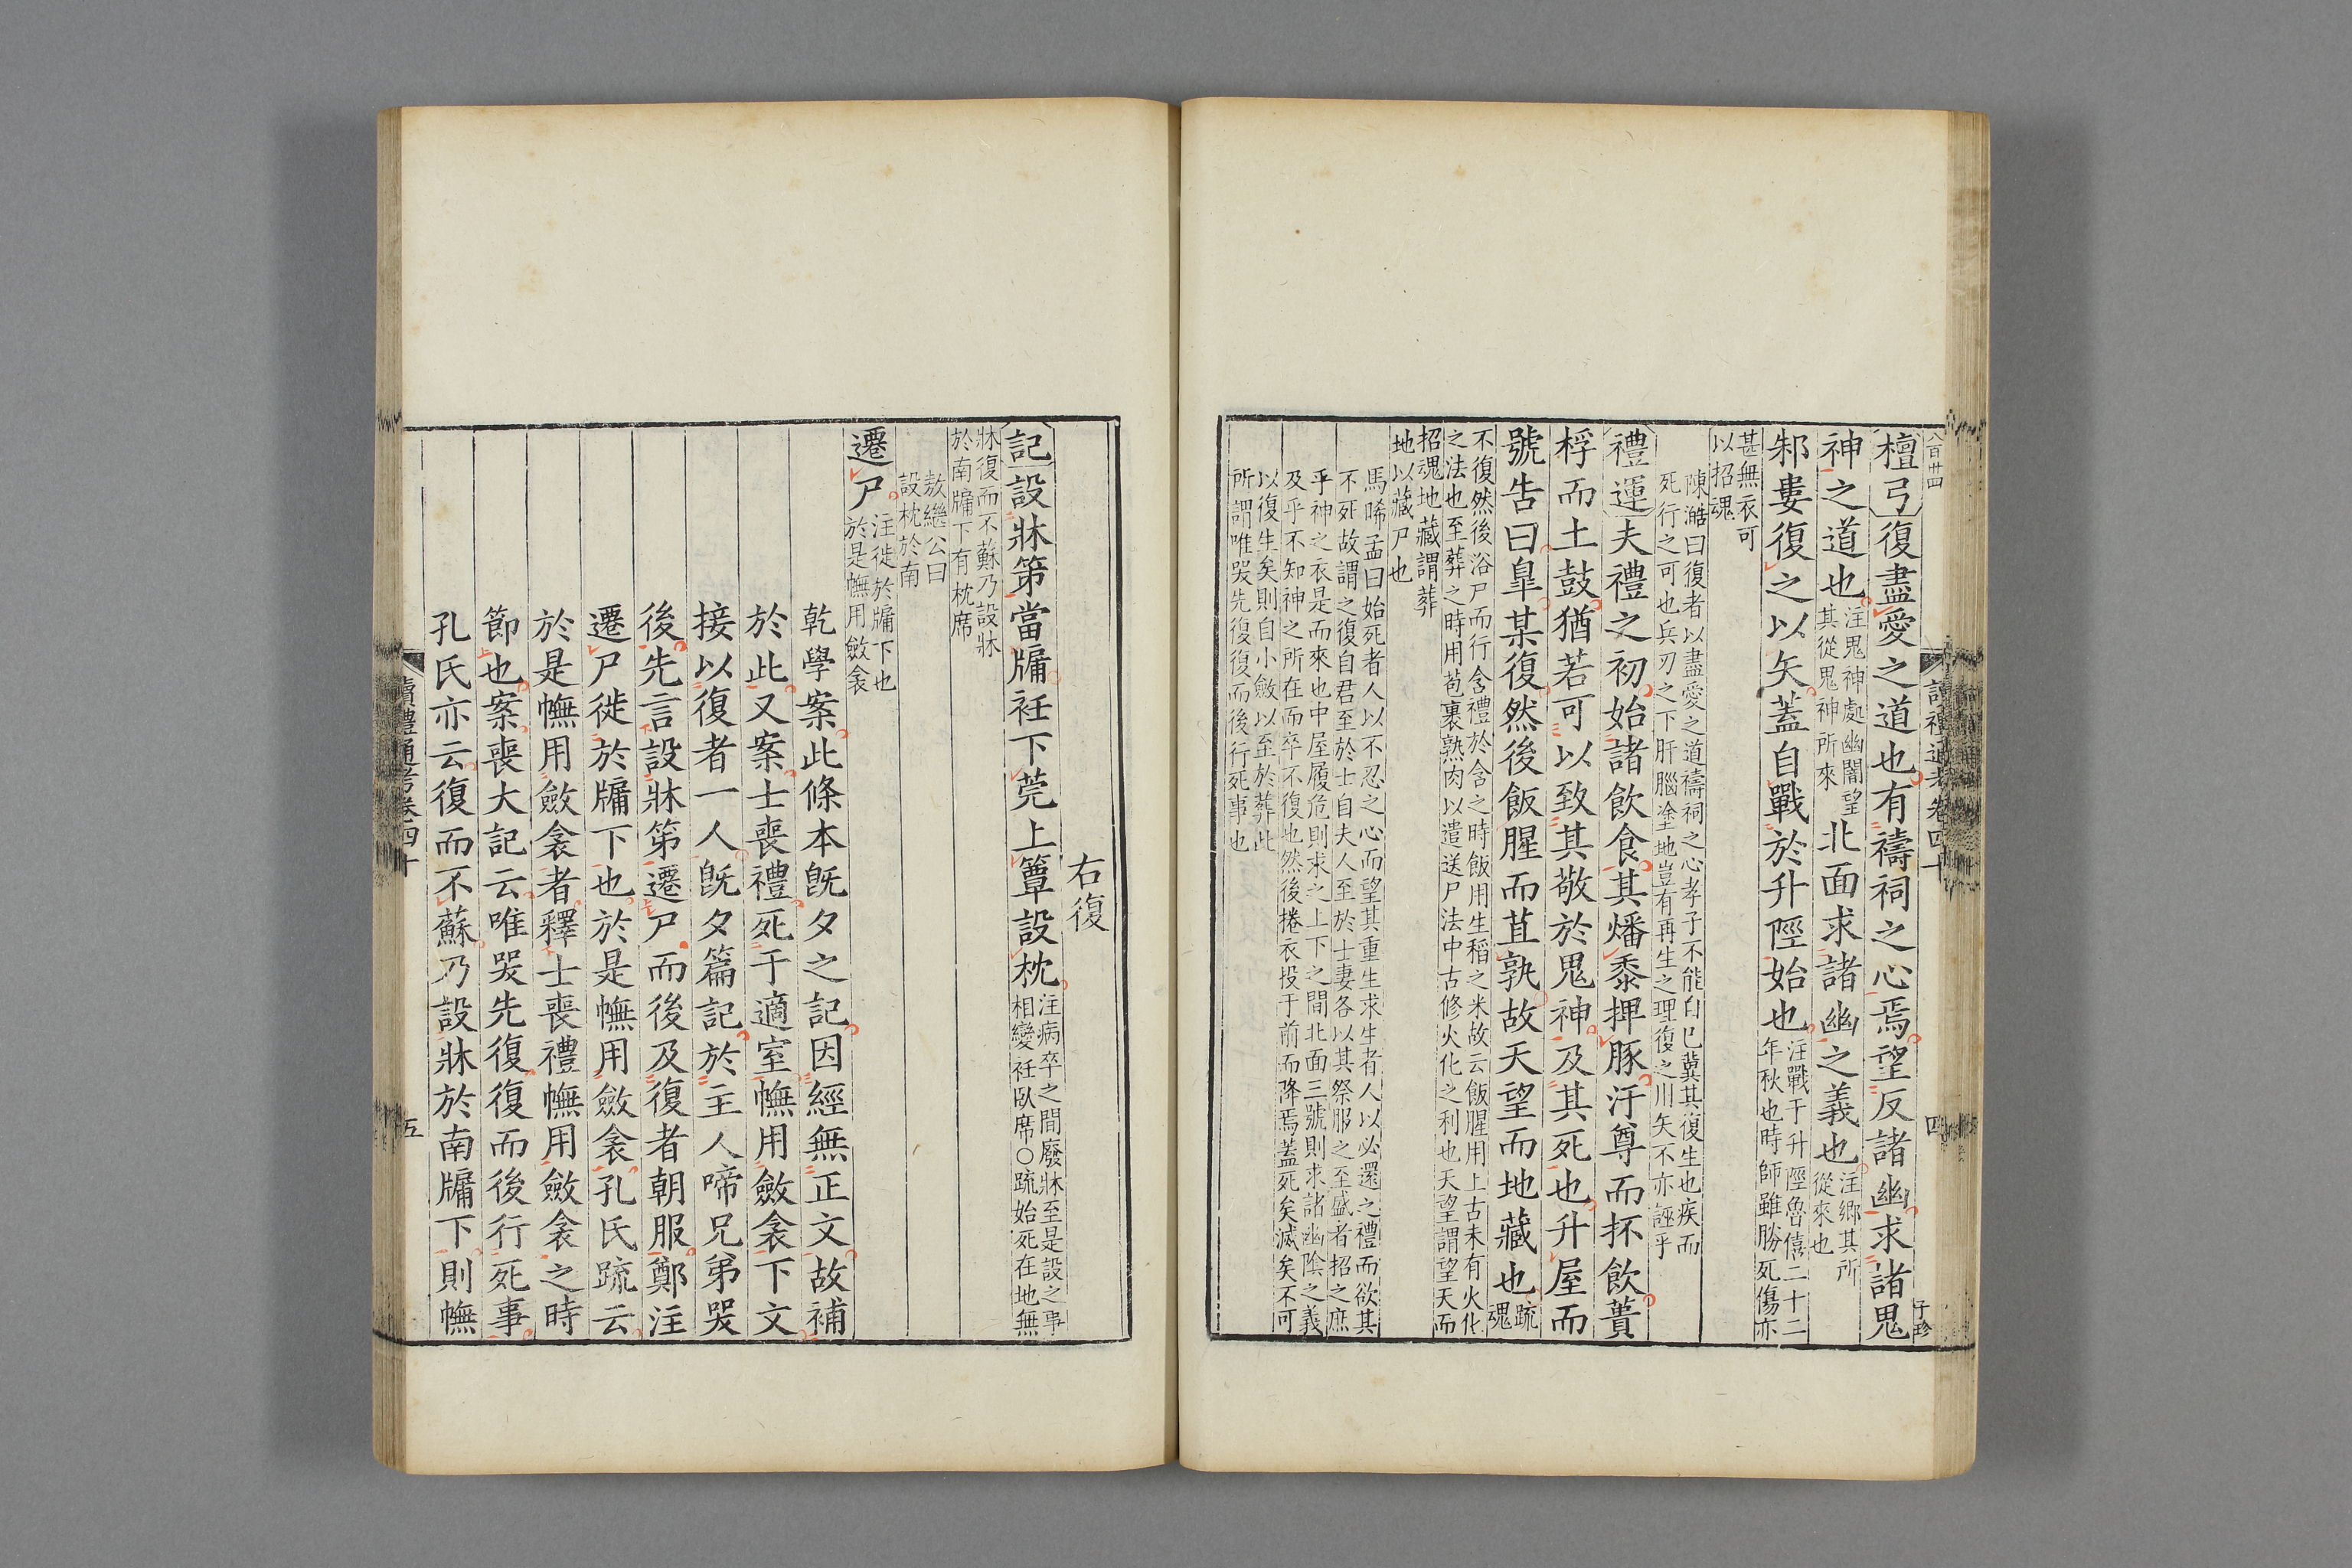 八百廿四
讀禮通考卷四十
四
子珍
檀弓復盡愛之道也有禱祠之心焉望反諸幽求諸鬼
神之道也注鬼神處幽闇望其從鬼神所來北面求諸幽之義也注鄉其所從來也
邾婁復之以矢蓋自戰於升陘始也注戰于升陘魯僖二十二年秋也時師雖勝死傷亦
甚無衣可以招魂
陳澔曰復者以盡愛之道禱祠之心孝子不能自已冀其復生也疾而
死行之可也兵刃之下肝腦塗地豈有再生之理復之用矢不亦誣乎
禮運夫禮之初始諸飲食其燔黍捭豚汙尊而抔飲蕢
桴而土鼓猶若可以致其敬於鬼神及其死也升屋而
號告曰臯某復然後飯腥而苴孰故天望而地藏也疏魂
不復然後浴尸而行含禮於含之時飯用生稻之米故云飯腥用上古未有火化
之法也至葬之時用苞裹熟肉以遣送尸法中古修火化之利也天望謂望天而
招魂地藏謂葬
地以藏尸也
馬晞孟曰始死者人以不忍之心而望其重生求生者人以必還之禮而欲其
不死故謂之復自君至於士自夫人至於士妻各以其祭服之至盛者招之庶
乎神之衣是而來也中屋履危則求之上下之間北面三號則求諸幽陰之義
及乎不知神之所在而卒不復也然後捲衣投于前而降焉蓋死矣滅矣不可
以復生矣則自小斂以至於葬此
所謂唯哭先復復而後行死事也
右復
記設牀笫當牖衽下莞上簟設枕注病卒之間廢牀至是設之事相變衽臥席○疏始死在地無
牀復而不蘇乃設牀
於南牖下有枕席
敖繼公曰
設枕於南
遷尸注徙於牖下也於是幠用斂衾
乾學案此條本旣夕之記因經無正文故補
於此又案士喪禮死于適室幠用斂衾下文
接以復者一人旣夕篇記於主人啼兄弟哭
後先言設牀笫遷尸而後及復者朝服鄭注
遷尸徙於牖下也於是幠用斂衾孔氏疏云
於是幠用斂衾者釋士喪禮幠用斂衾之時
節也案喪大記云唯哭先復復而後行死事
孔氏亦云復而不蘇乃設牀於南牖下則幠
讀禮通考卷四十
五